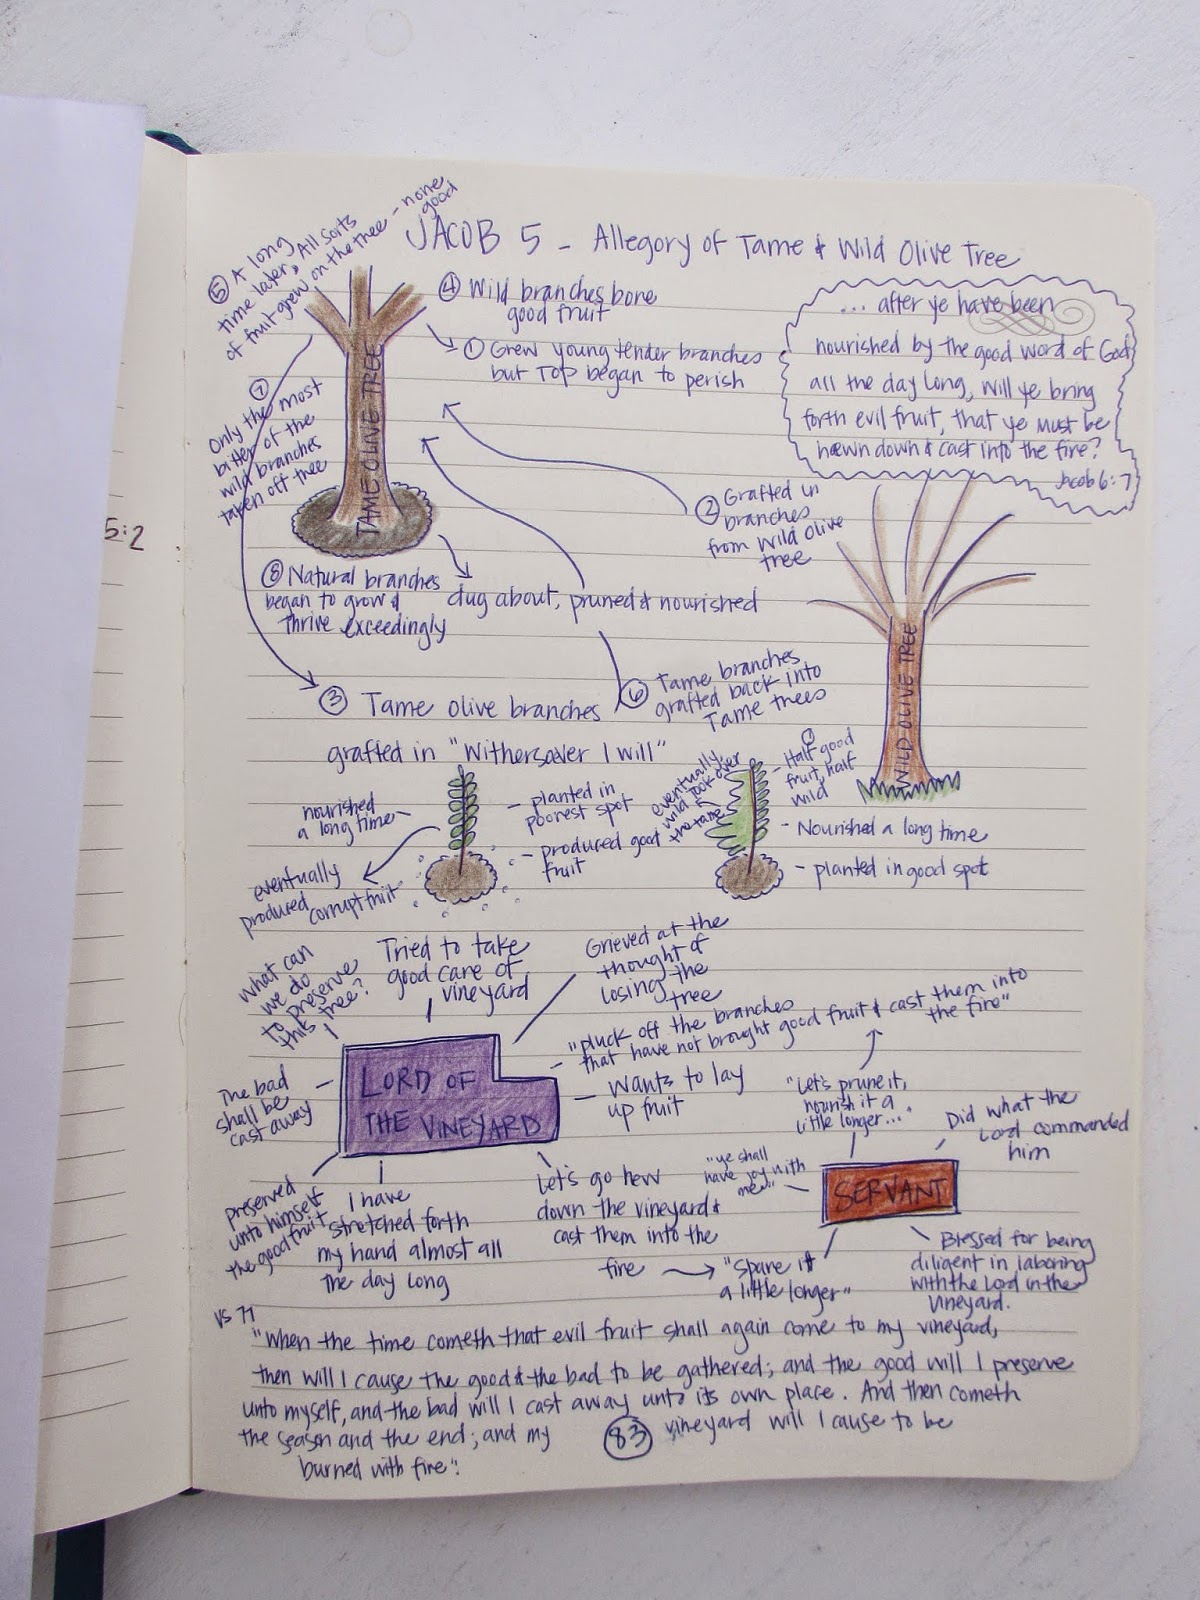 5:2
JACOB 5 - Allegory of Tame & Wild Olive Tree
⑤ A long
time later, All sorts
of fruit grew on the tree - none
good
④ Wild branches bone
good fruit
① Grew young tender branches
but TOP began to perish
... after ye have been
nourished by the good word of God
all the day long, will ye bring
forth evil fruit, that ye must be
hewn down & cast into the fire?
Jacob 6:7
⑦
Only the most
bitter of the
wild branches
taken off tree
TAME OLIVE TREE
② Grafted in
branches
from Wild Olive
tree
WILD OLIVE TREE
⑧ Natural branches
began to grow &
thrive exceedingly
dug about, pruned & nourished
③ Tame olive branches
grafted in "Withersoever I will"
⑥ Tame branches
grafted back into
Tame trees
nourished
a long time
eventually
produced corrupt fruit
- planted in
poorest spot
- produced good
fruit
eventually,
wild took over
the tame
- Half good
fruit, half
wild
- Nourished a long time
- planted in good spot
What can
we do
to preserve
this tree?
Tried to take
good care of
vineyard
Grieved at the
thought of
losing the
tree
- "pluck off the branches
that have not brought good fruit & cast them into
the fire"
The bad
shall be
cast away
LORD OF
THE VINEYARD
- Wants to lay
up fruit
"Let's prune it,
nourish it a
little longer..."
Did what the
Lord commanded
him
"ye shall
have joy with
me"
SERVANT
preserved
unto himself
the good fruit
I have
stretched forth
my hand almost all
the day long
Let's go hew
down the vineyard &
cast them into the
fire
"Spare it
a little longer"
Blessed for being
diligent in laboring
with the Lord in the
Vineyard.
vs 77
"When the time cometh that evil fruit shall again come to my vineyard,
then will I cause the good & the bad to be gathered; and the good will I preserve
unto myself, and the bad will I cast away unto its own place. And then cometh
the season and the end; and my vineyard will I cause to be
burned with fire".
83